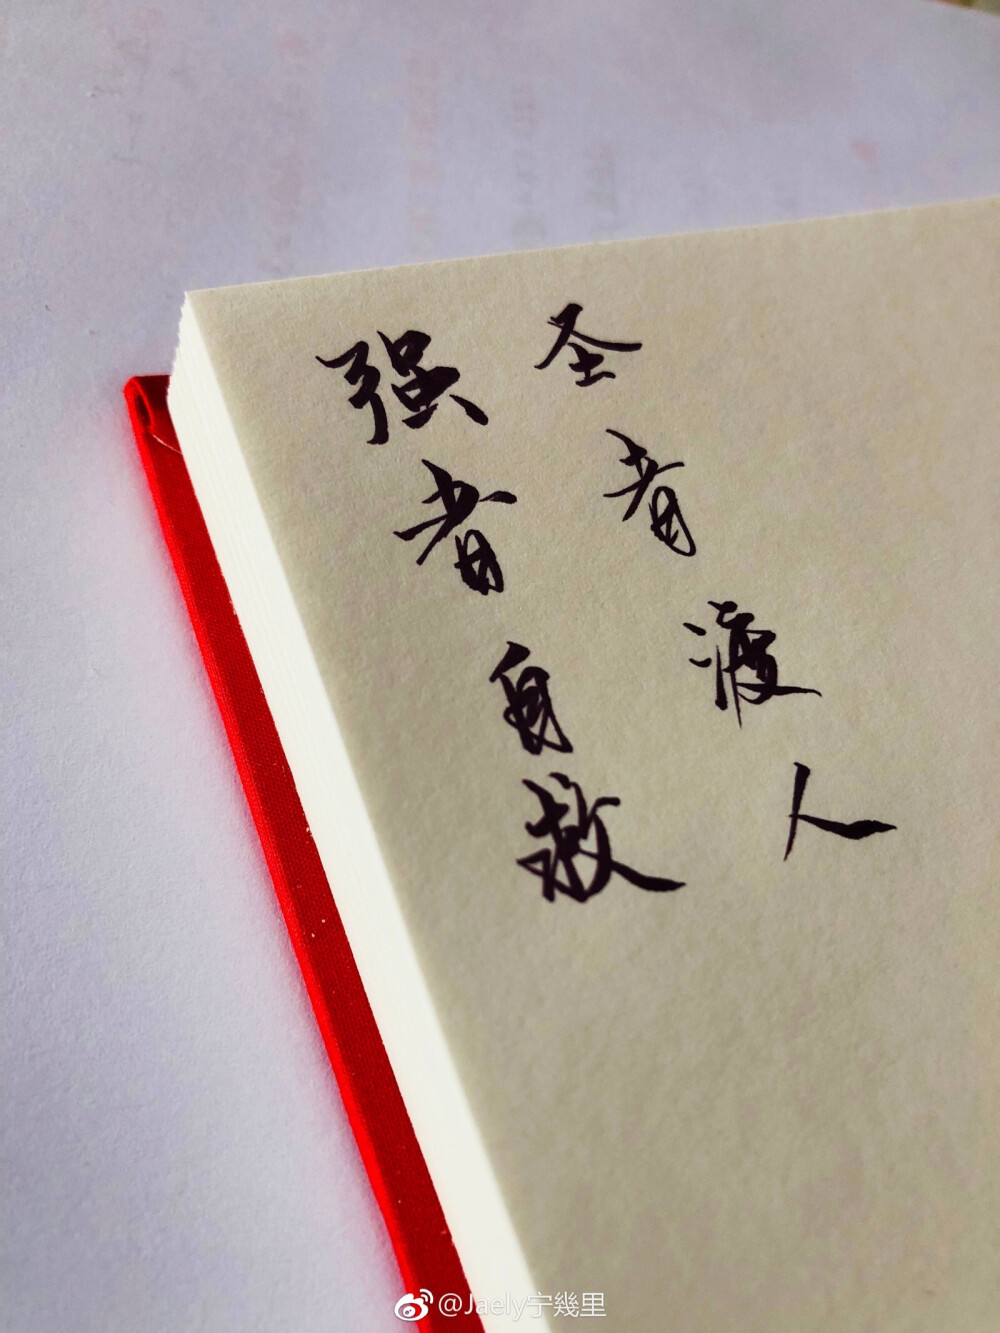 强者自救
圣者渡人
@Jaely宁幾里